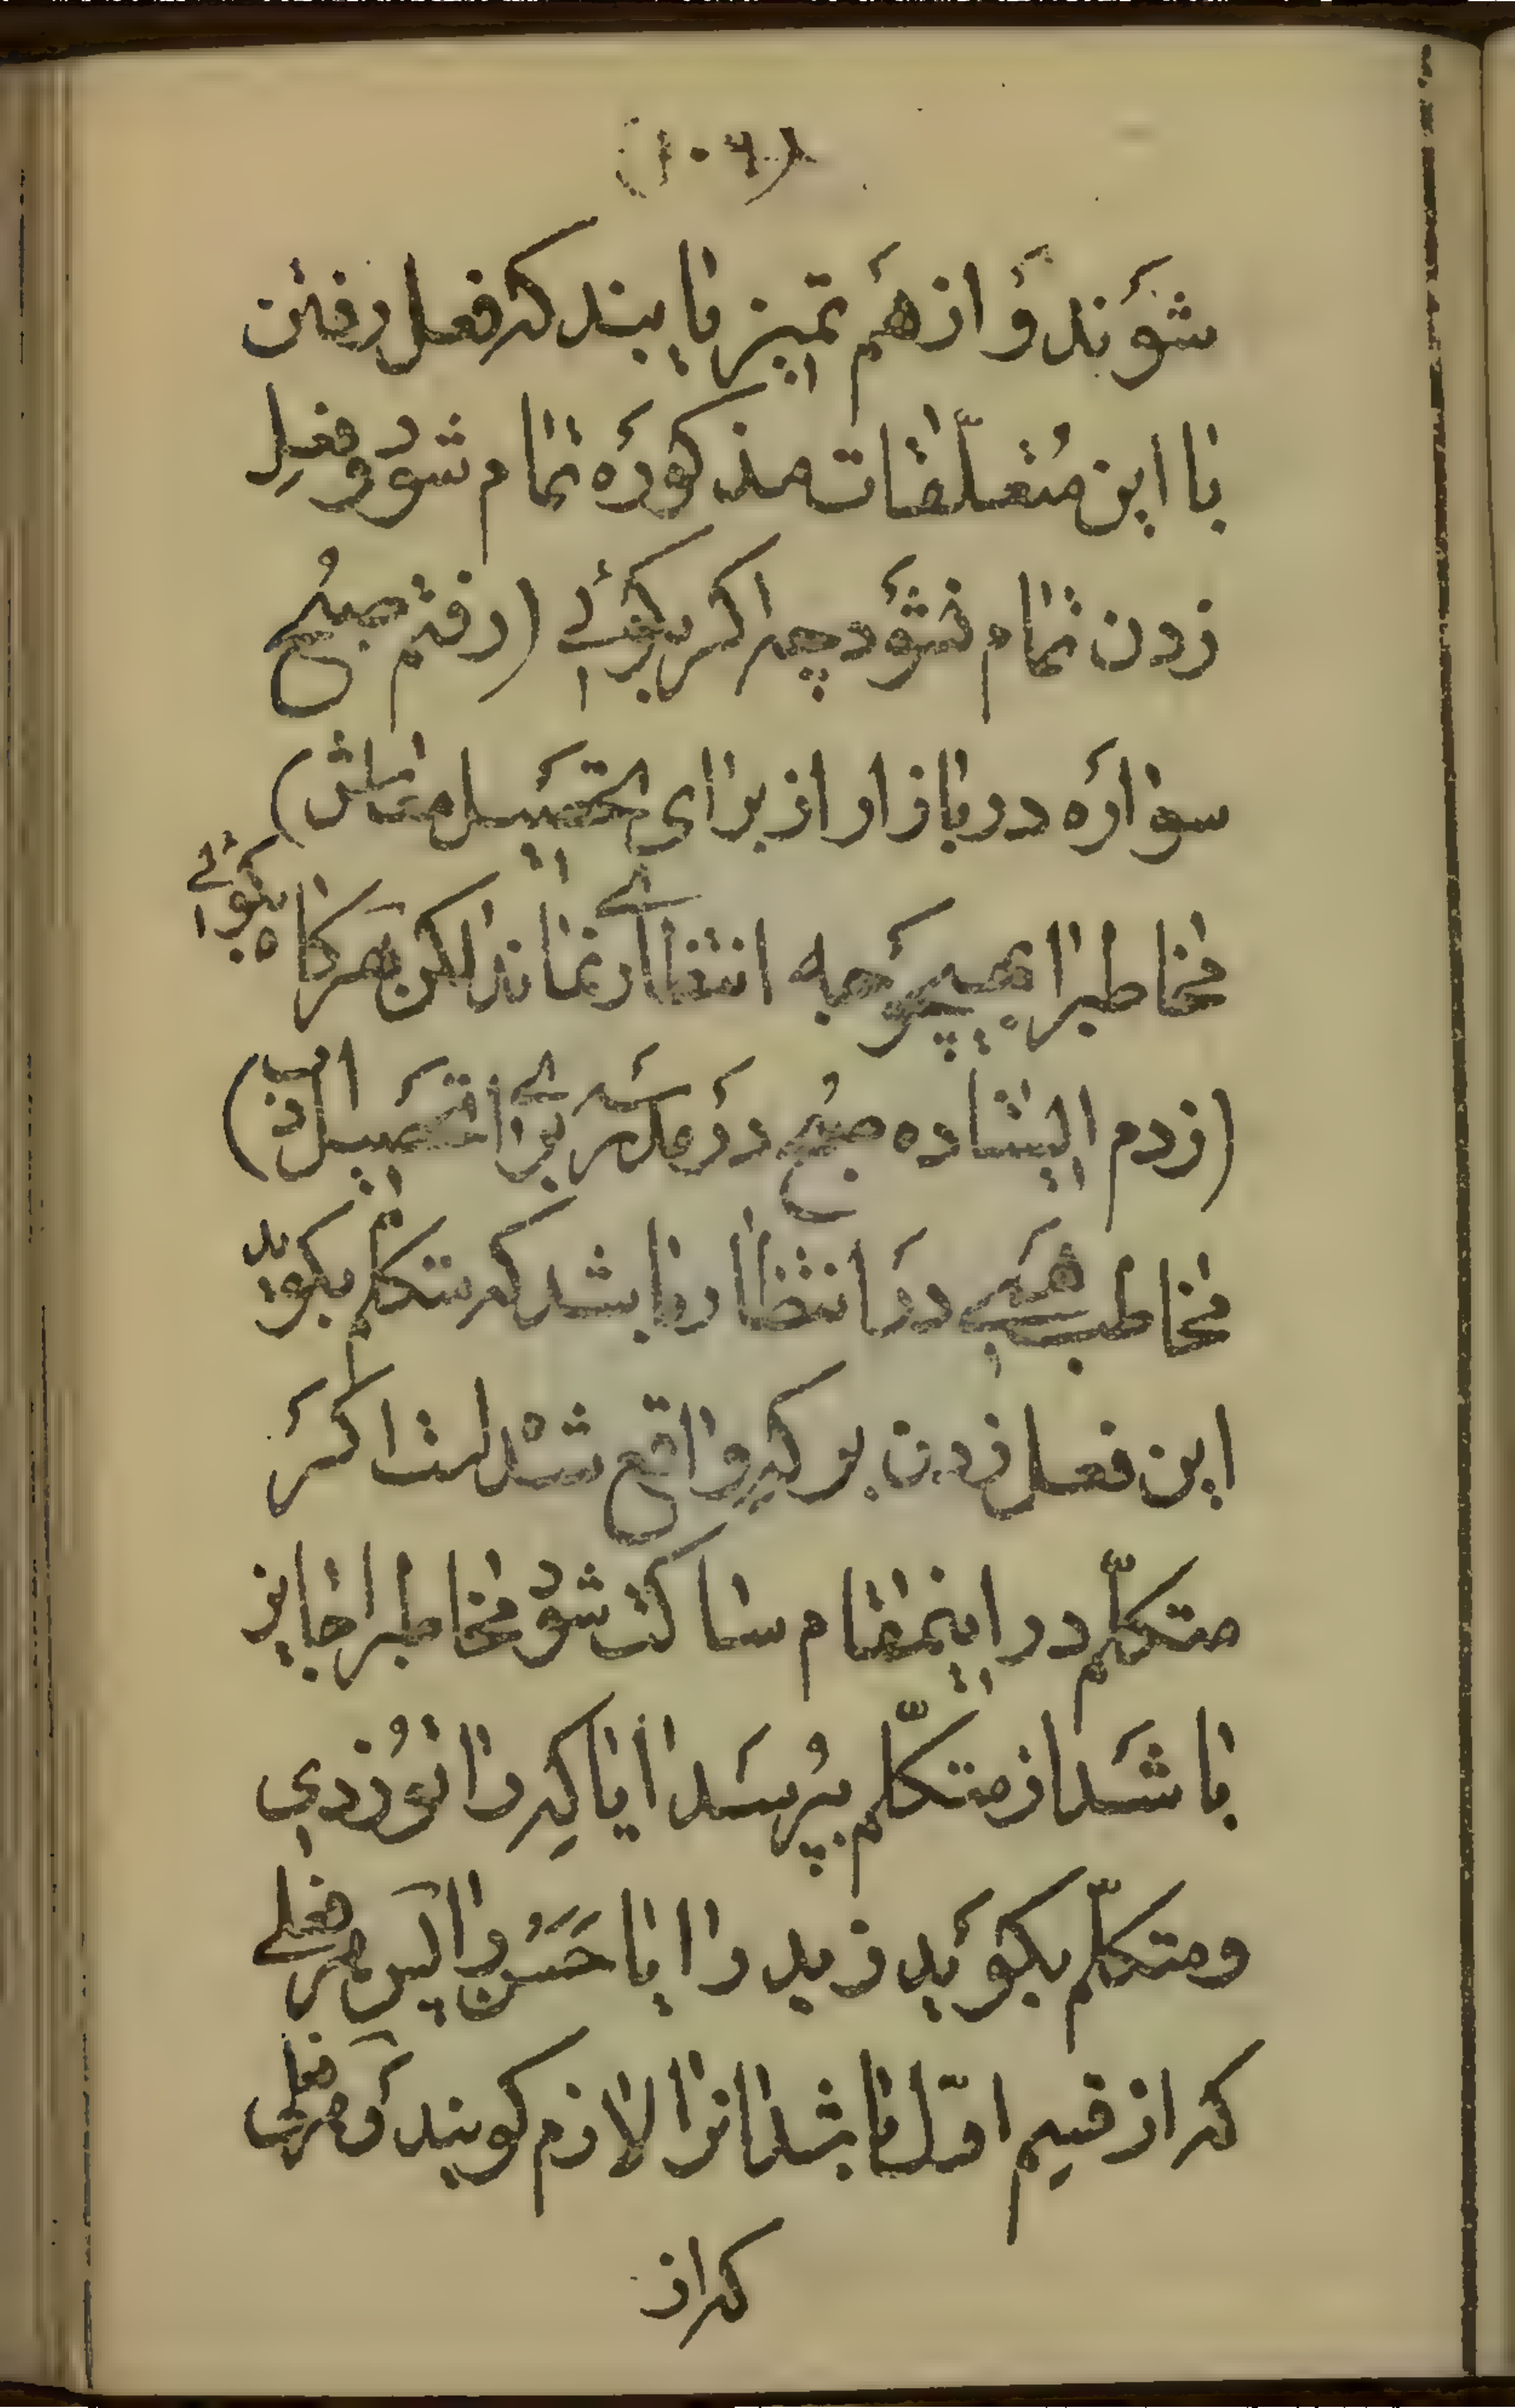 (۱۰۶)
شوَند وَ از هَم تمیز یابند که فعل رفتن
با این مُتعلّقات مذکورَه تمام شود و فعلِ
زدن تمام نشوَد چه اگر بگوئے (رفتم صبُح
سوارَه در بازار از برای تحصَیل معاش)
مخاطبرا بهیچوَجه انتظارے نماند لکن هَرگاه بگوئے
(زدم ایستاده صبُح درَ مدرسَه برای تحصَیل ادب)
مخاطب هَمی درَ انتظار باشد که متکلّم بگوید
این فعل زدن بر که واقع شدْه است اگرَ
متکلّم در اینمقام ساکت شود مخاطبرا جایز
باشَد از متکلّم بپُرسَد ایا کِه را توُ زدی
و متکلّم بگوَید زید را یا حَسَنُ را پس هَر فعلے
که از قسم اوّل باشد انرا لازم گویند وَ هر فعلی
که از